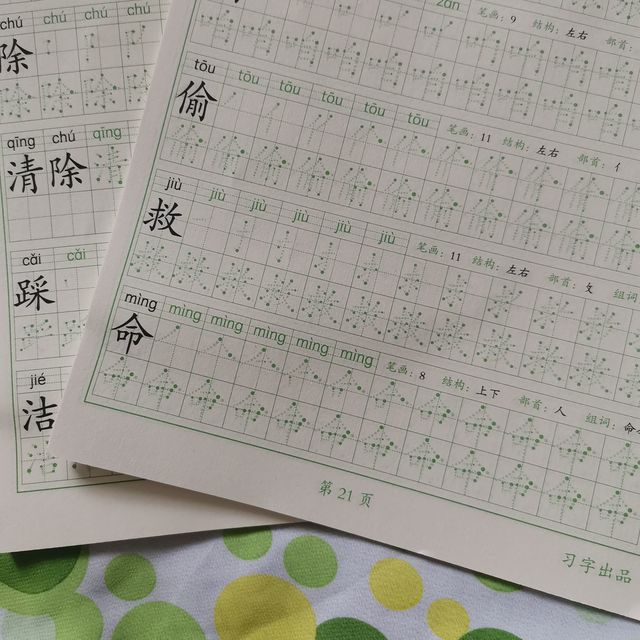 chú chú chú chú
除
qīng chú qīng
清除
cǎi cǎi
踩
jié
洁
zàn
笔画：9 结构：左右 部首：
tōu tōu tōu tōu tōu tōu
偷 笔画：11 结构：左右 部首：亻
jiù jiù jiù jiù jiù jiù
救 笔画：11 结构：左右 部首：攵 组词
mìng mìng mìng mìng mìng mìng
命 笔画：8 结构：上下 部首：人 组词：命
第 21 页
习字出品